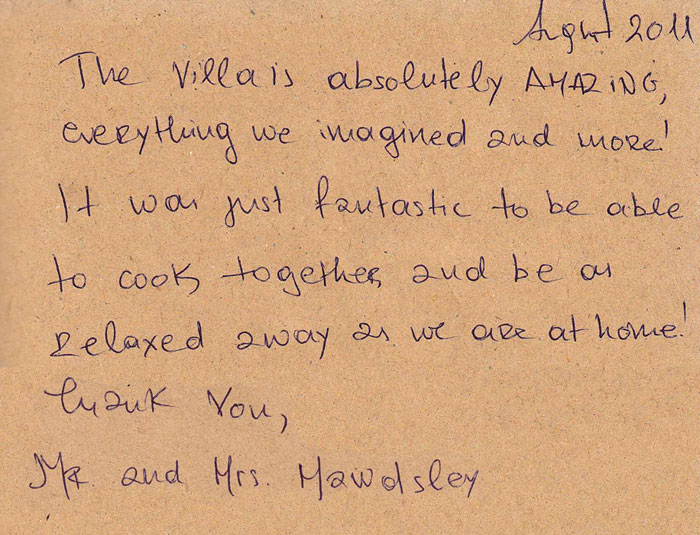 August 2011
The Villa is absolutely AMAZING,
everything we imagined and more!
It was just fantastic to be able
to cook together and be as
relaxed away as we are at home!
Thank You,
Mr. and Mrs. Mawdsley